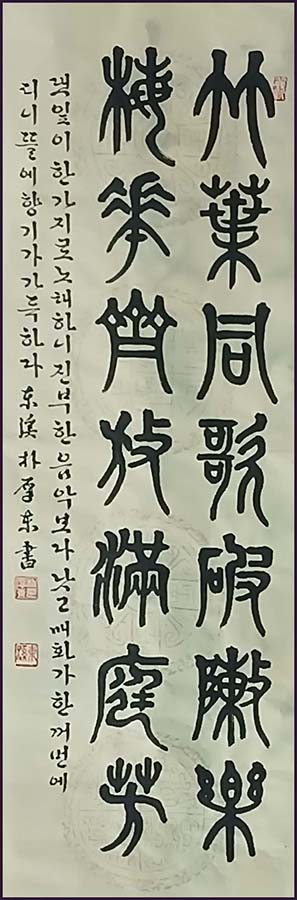 竹葉同歌破敶樂
梅花齊放滿庭芳
댓잎이 한가지로 노래하니 진부한 음악보다 낫고 매화가 한꺼번에
피니 뜰에 향기가 가득하다 东溪 朴 东 書